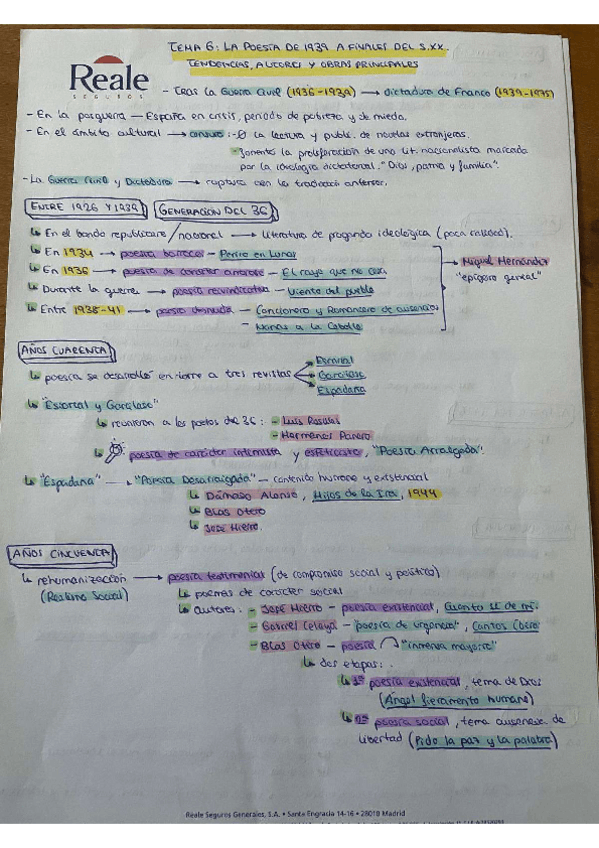 TEMA 6: LA POESÍA DE 1939 A FINALES DEL S.XX.
TENDENCIAS, AUTORES Y OBRAS PRINCIPALES
Reale
SEGUROS
- Tras la Guerra Civil (1936-1939) → dictadura de Franco (1939-1975)
- En la posguerra — España en crisis, período de pobreza y de miedo.
- En el ámbito cultural → censura :- Ø la lectura y public. de novelas extranjeras.
- fomentó la proliferación de una lit. nacionalista marcada
por la ideología dictatorial. "Dios, patria y familia".
- La Guerra Civil y Dictadura → ruptura con la tradición anterior.
ENTRE 1926 Y 1939 GENERACIÓN DEL 36
↳ En el bando republicano / nacional → literatura de propaganda ideológica (poca calidad).
↳ En 1934 → poesía barroca - Perito en Lunas
↳ En 1936 → poesía de carácter amoroso - El rayo que no cesa
→ Miguel Hernández
"epígono genial"
↳ Durante la guerra → poesía reivindicativa - Viento del pueblo
↳ Entre 1938-41 → poesía desnuda - Cancionero y Romancero de ausencias
- Nanas a la Cebolla
AÑOS CUARENTA
↳ poesía se desarrolló en torno a tres revistas
Escorial
Garcilaso
Espadaña
↳ "Escorial y Garcilaso"
↳ reunieron a los poetas del 36: - Luis Rosales
- Hermanos Panero
↳ poesía de carácter intimista y esteticista, "Poesía Arraigada".
↳ "Espadaña" → "Poesía Desarraigada" - contenido humano y existencial
↳ Dámaso Alonso, Hijos de la Ira, 1944
↳ Blas Otero
↳ José Hierro.
AÑOS CINCUENTA
↳ rehumanización → poesía testimonial (de compromiso social y político)
(Realismo Social) ↳ poemas de carácter social
↳ autores: - José Hierro - poesía existencial, Cuanto sé de mí.
- Gabriel Celaya - "poesía de urgencia", Cantos Íberos
- Blas Otero - poesía "inmensa mayoría"
↳ dos etapas:
↳ 1ª poesía existencial, tema de Dios
(Ángel fieramente humano)
poesía social, tema ausencia de
libertad (Pido la paz y la palabra)
Reale Seguros Generales, S.A. • Santa Engracia 14-16 • 28010 Madrid